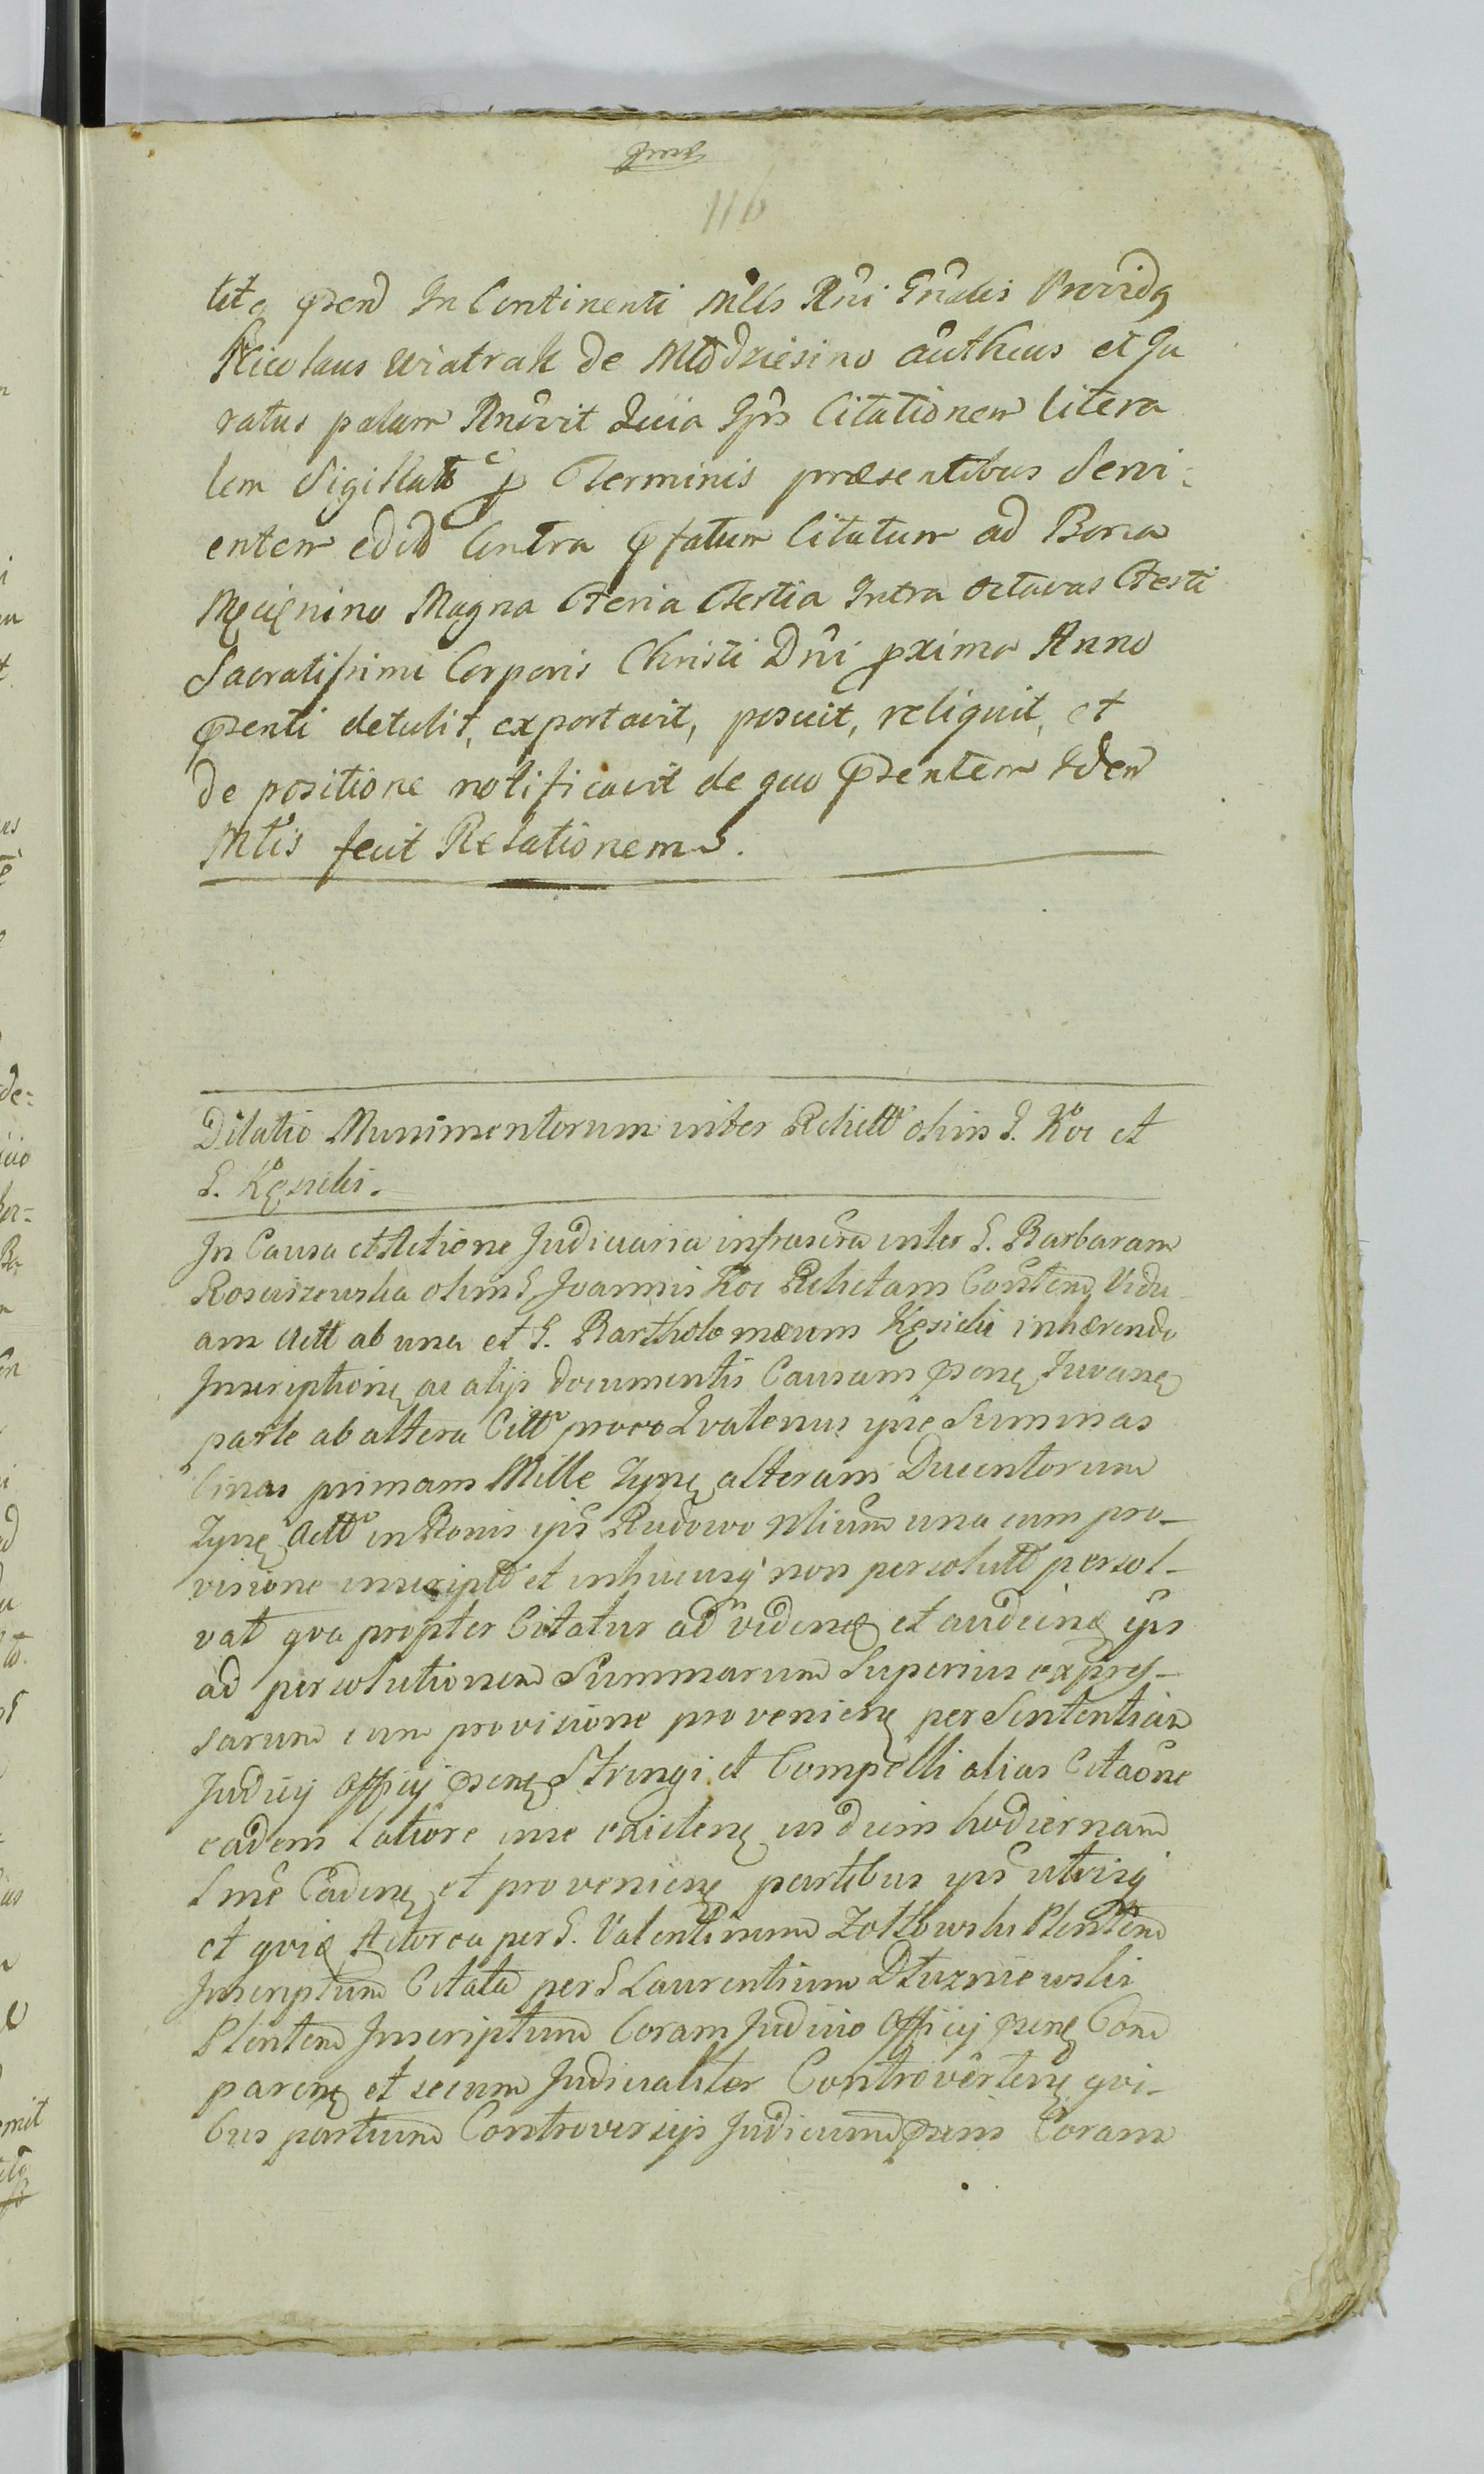 116
In Continenti Mtis Rni Gnalis Provid9
Nicolaus Wiatrak de Młodziesino authcus et Ju
ratus palam Rnovit Quia Ips Citationem litera
lem Sigillatt p Terminis præsentibus Servi:
entem edid Contra pfatum Citatum ad Bona
Męcięnino Magna Feria Tertia Intra Octavas Festi
Sacratissimi Corporis Christi Dni pximo Anno
psenti detulit, exportavit, posuit, reliquit, et
de positione notificavit de quo psentem Idem
Mtis fecit Relationem.
Dilatio Munimentorum inter Relictt olim G. Koc et
G. Kęsicki.
In Causa et Actione Judiciaria infrascra inter G. Barbaram
Rosciszewska olim G Joannis Koc Relictam Vidu
am Actt ab una et G. Bartholomæum Kęsicki inhærendo
Inscriptione ac alijs documentis Causam psen Juvan
parte ab altera Citt pro eo Qvatenus ipse Summas
binas primam Mille Tynf alteram Ducentorum
Tynf Actt in Bonis ips Rudowo una cum pro-
visione inscriptt et inhucusq non persolutt persol-
vat qva propter Citatur ad viden et audien ips
ad persolutionem Summarum Superius expres-
sarum cum provisione provenien per Sententiam
Judicij Officij psen Stringi et Compelli alias Citaone
eadem latiore in se existen in diem hodiernam
Caden et provenien partibus ips utrisq
et qvide Actorea per G. Valentinum Zołtowski Plenten
Inscriptum Citata per G Laurentium Dłuzniewski
Plenten Inscriptum Coram Judicio Officij psen Com
paren et secum Judicialiter Controverten qvi-
bus partium Controversijs Judicium psens Coram